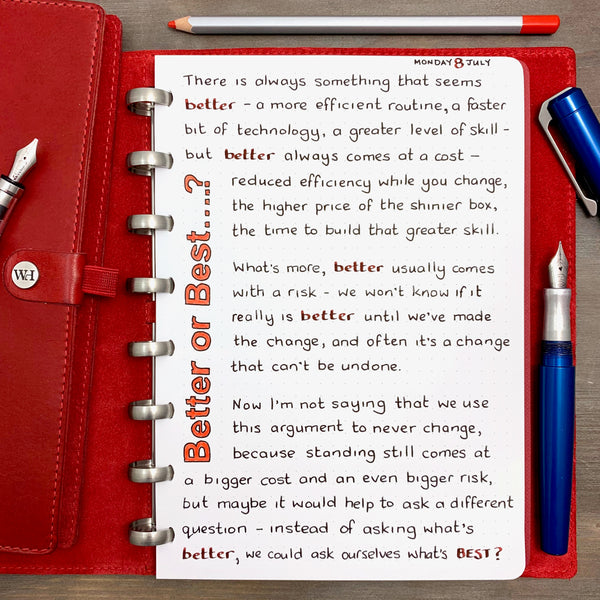 MONDAY 8 JULY
There is always something that seems
better - a more efficient routine, a faster
bit of technology, a greater level of skill -
but better always comes at a cost -
reduced efficiency while you change,
the higher price of the shinier box,
the time to build that greater skill.
Better or Best....?
What's more, better usually comes
with a risk - we won't know if it
really is better until we've made
the change, and often it's a change
that can't be undone.
Now I'm not saying that we use
this argument to never change,
because standing still comes at
a bigger cost and an even bigger risk,
but maybe it would help to ask a different
question - instead of asking what's
better, we could ask ourselves what's BEST?
WH